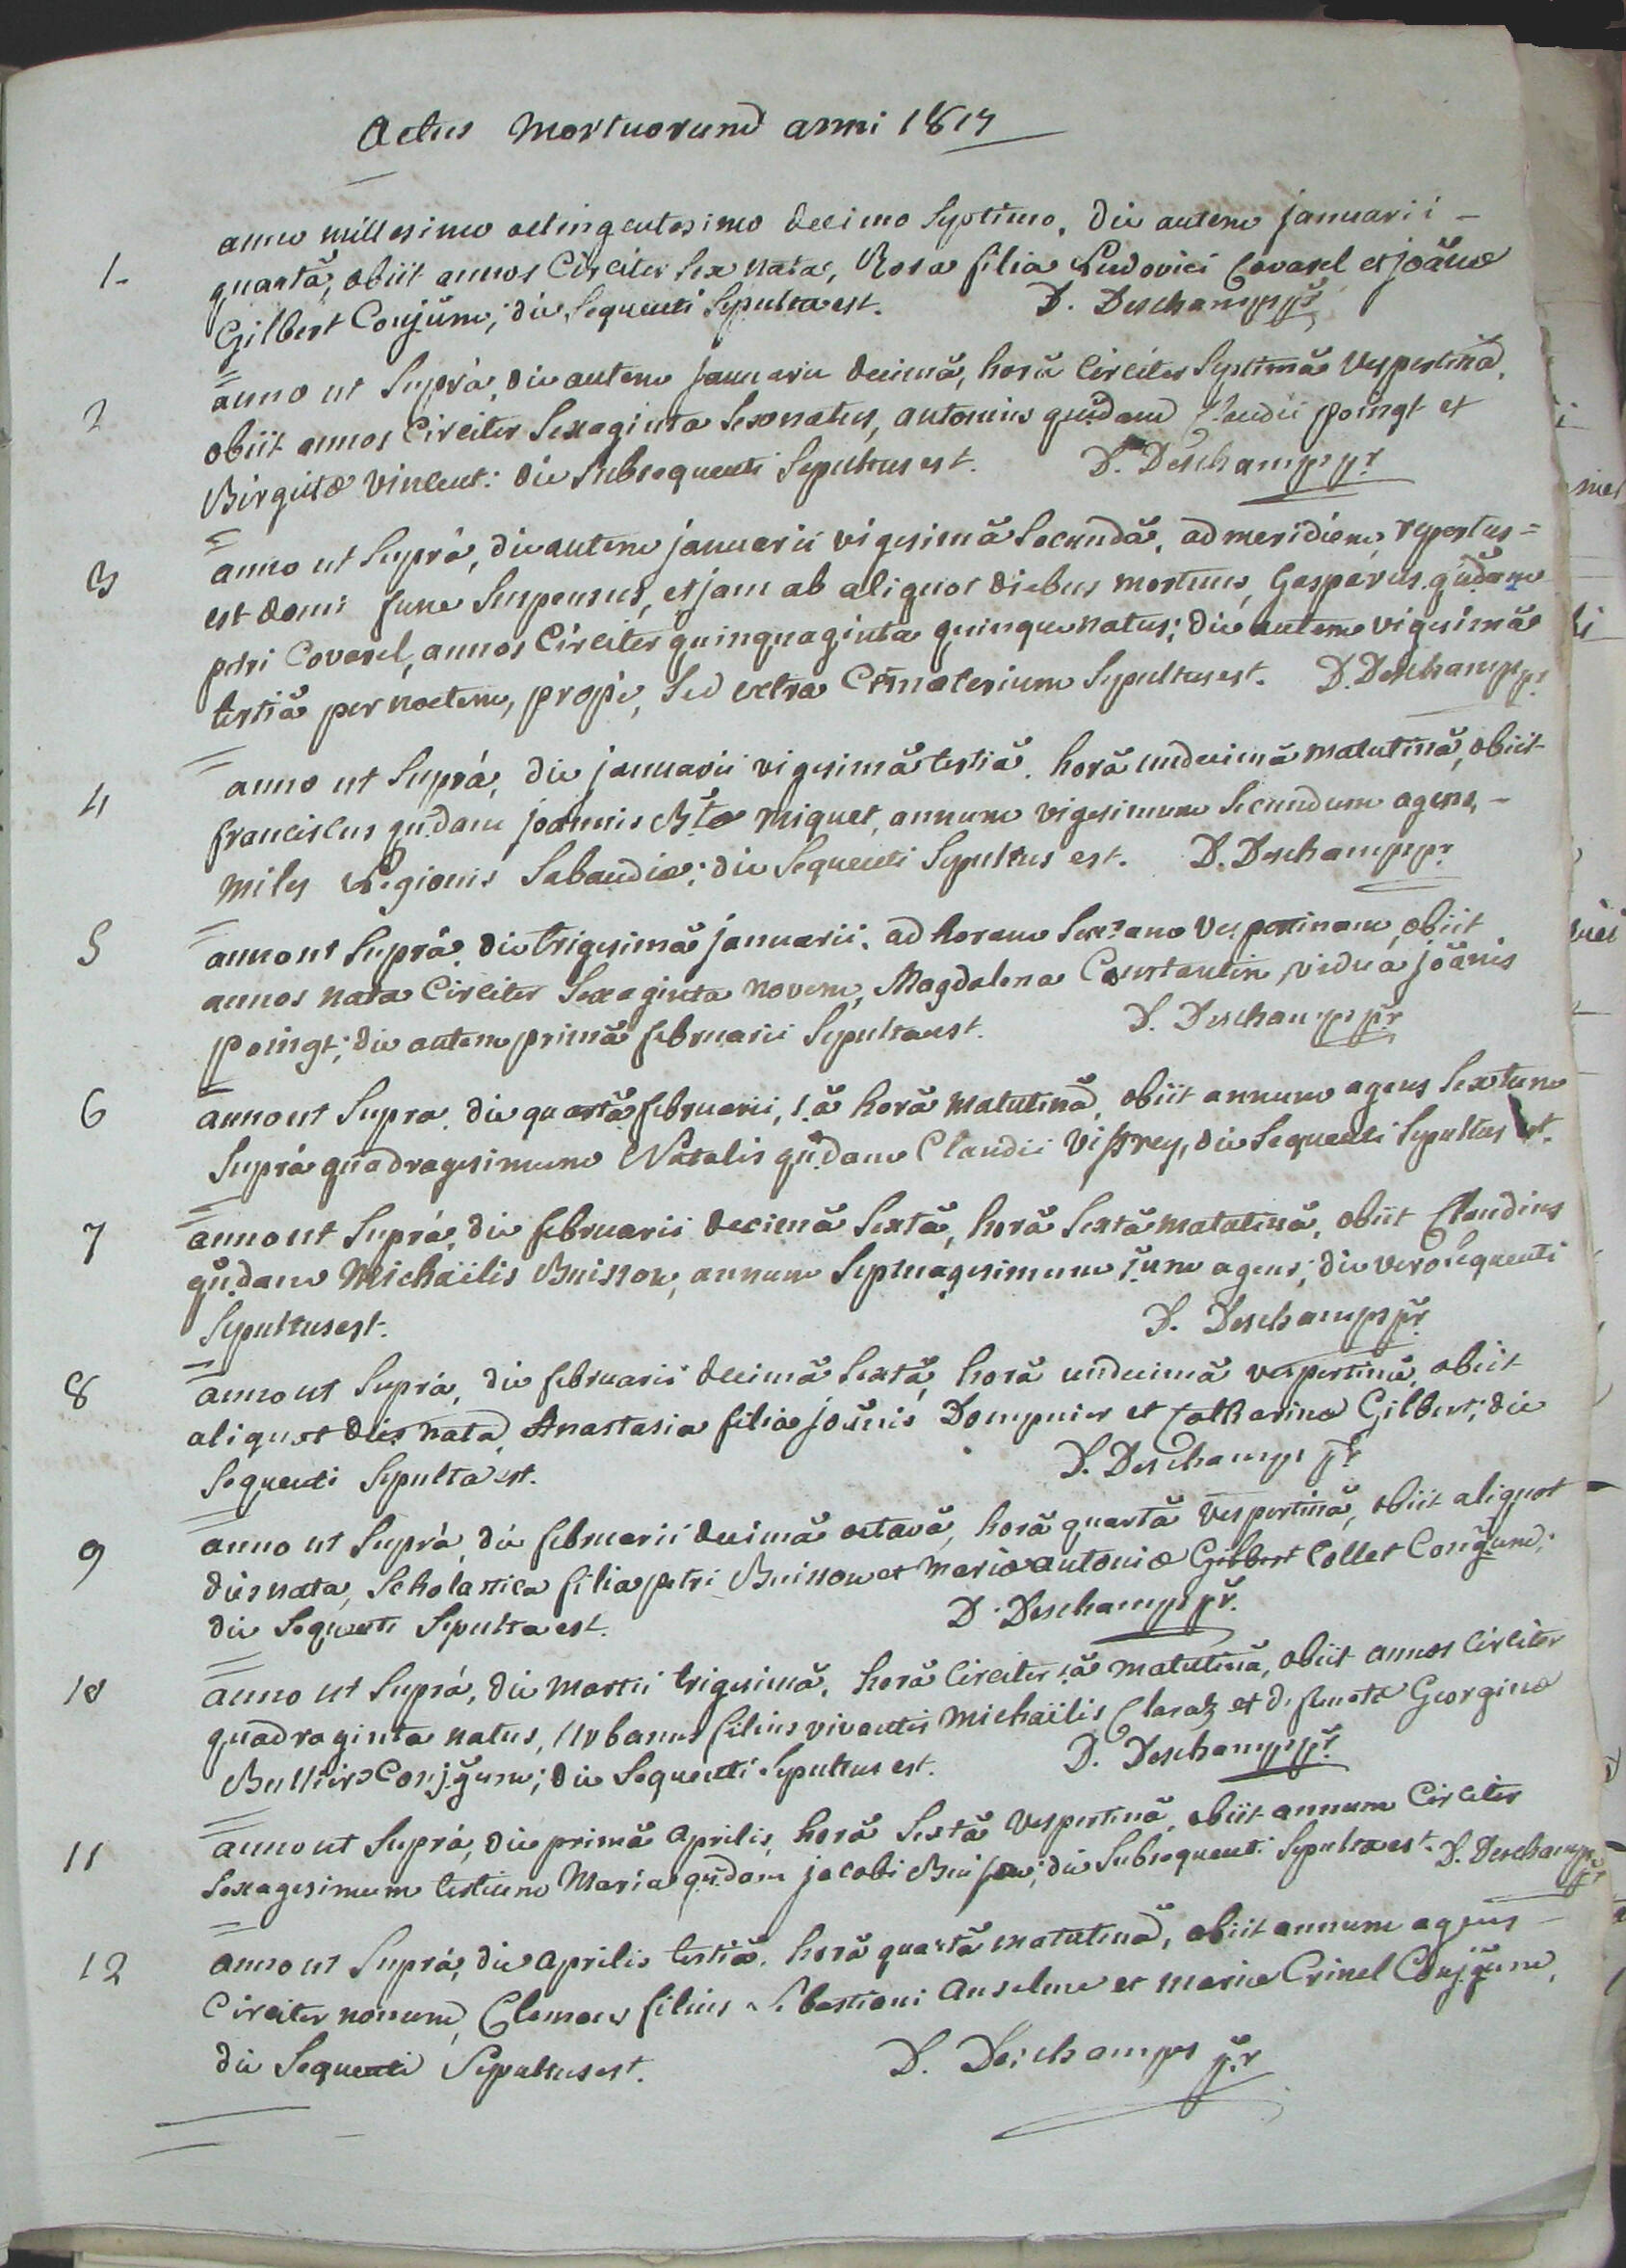 Actus Mortuorum anni 1817
1- anno millesimo octingentesimo decimo Septimo, die autem januarii -
quartâ, obiit annos Circiter Sex nata, Rosa filia Ludovici Covarel et joãnæ
Gilbert Conjũm; die Sequenti Sepulta est. D. Deschamps pr̃
2 anno ut Suprà, die autem januarii decimâ, horâ Circiter Septimâ Vespertinâ,
obiit annos Circiter Sexaginta Sex natus, antonius qũdam Claudii poingt et
Birgitæ Vincent: die Subsequenti Sepultus est. D. Deschamps pr
3 anno ut Suprà, die autem januarii vigesimâ Secundâ, ad meridiem, repertus =
est domi fune Suspensus, et jam ab aliquot diebus mortuus, Gasparus qũdam
petri Covarel, annos Circiter quinquaginta quinque natus; die autem vigesimâ
tertiâ per noctem, propè, Sed extra Cimæterium Sepultus est. D. Deschamps pr
4 anno ut Suprà, die januarii vigesimâ tertiâ, horâ undecimâ matutinâ, obiit
franciscus qũdam joannis Btæ Miquet, annum vigesimum Secundum agens, -
Miles Legionis Sabaudiæ; die Sequenti Sepultus est. D. Deschamps pr
5 anno ut Suprà, die trigesimâ januarii, ad horam Sextam Vespertinam, obiit
annos nata Circiter Sexaginta novem, Magdalena Constantin, vidua joãnis
poingt; die autem primâ februarii Sepulta est. D. Deschamps pr
6 anno ut Supra, die quartâ februarii, 1.â horâ matutinâ, obiit annum agens Sextum
Suprà quadragesimum Natalis qũdam Claudii Vissrey, die Sequenti Sepultus est.
7 anno ut Suprà, die februarii decimâ Sextâ, horâ Sextâ matutinâ, obiit Claudius
qũdam Michaëlis Buisson, annum Septuagesimum 1.um agens; die vero Sequenti
Sepultus est. D. Deschamps pr
8 anno ut Suprà, die februarii decimâ Sextâ, horâ undecimâ vespertinâ, obiit
aliquot dies nata, Anastasia filia joãnis Dompnier et Catharinæ Gilbert; die
Sequenti Sepulta est. D. Deschamps pr
9 anno ut Suprà, die februarii decimâ octavâ, horâ quartâ Vespertinâ, obiit aliquot
dies nata, Scholastica filia petri Buisson et mariæ antoniæ Gilbert Collet Conjgum;
die Sequenti Sepulta est. D. Deschamps pr.
10 anno ut Suprà, die martii trigesimâ, horâ Circiter 1.â matutinâ, obiit annos Circiter
quadraginta natus, Urbanus filius viventis Michaëlis Claraz et defunctæ Georginæ
Bulliers Conjgum; die Sequenti Sepultus est. D. Deschamps pr
11 anno ut Suprà, die primâ aprilis, horâ Sextâ Vespertinâ, obiit annum Circiter
Sexagesimum tertium Maria qũdam jacobi Buisson; die Subsequenti Sepulta est. D. Deschamps pr
12 anno ut Suprà, die aprilis tertiâ, horâ quartâ matutinâ, obiit annum agens -
Circiter nonum, Clemens filius Sebastiani Anselme et mariæ Crinel Conjgum,
die Sequenti Sepultus est. D. Deschamps pr